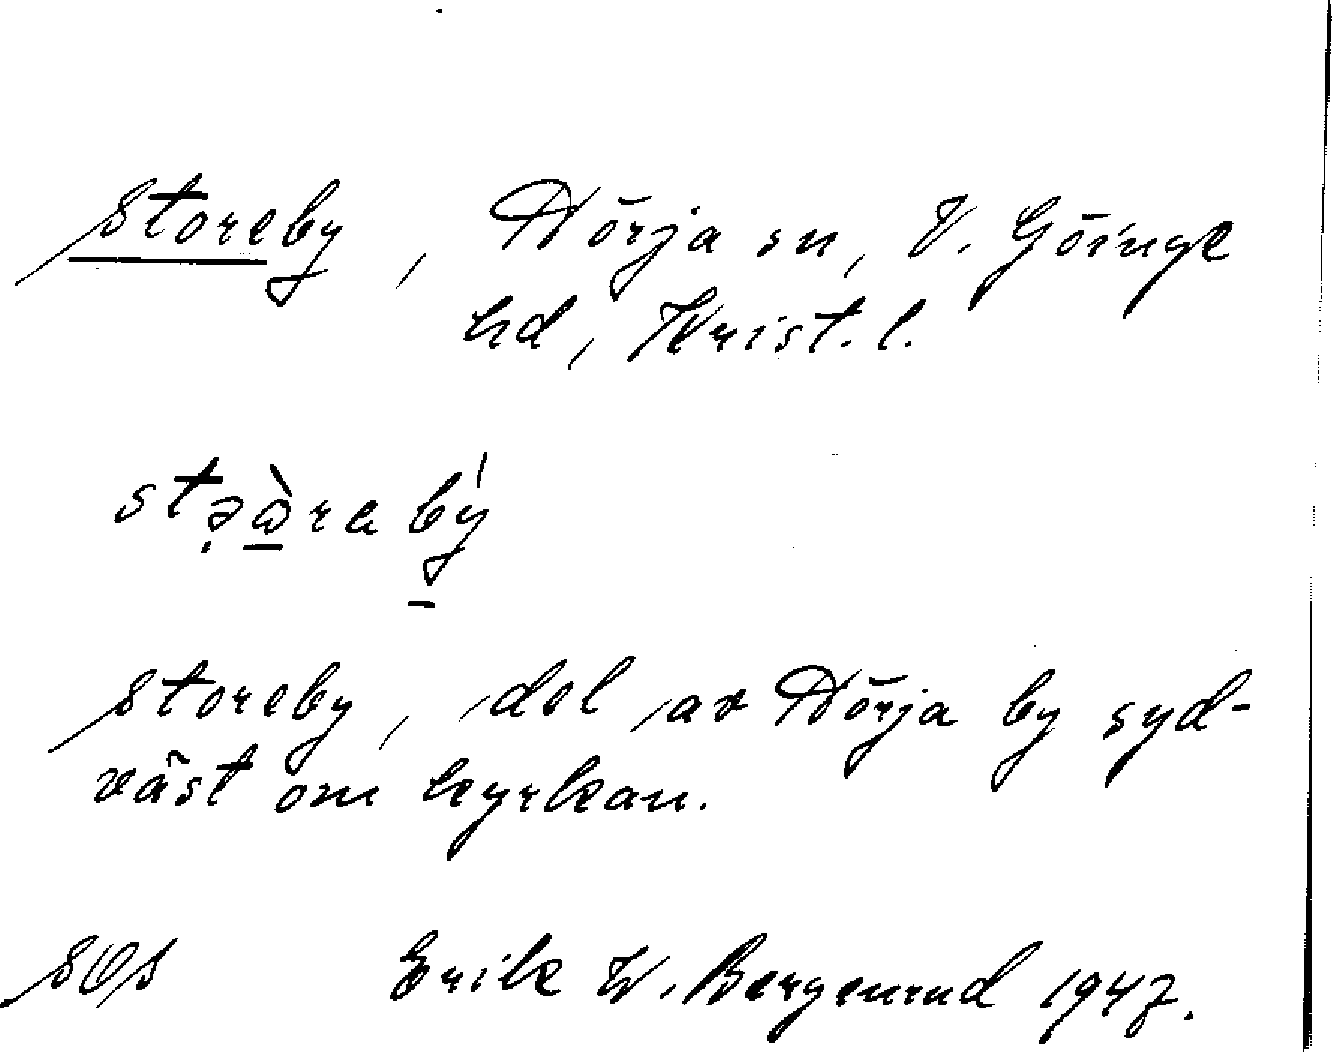 Storeby, Nörja sn, V. Göinge
hd, Krist. l.
stə̣ὼ̱ra bý̱
Storeby, del av Nörja by syd-
väst om kyrkan.
SOS Erik W. Bergenrud 1947.